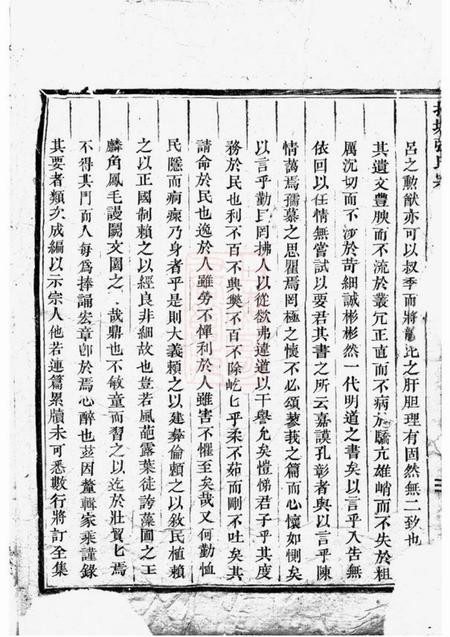 呂之勳猷亦可以叔季而將龍比之肝胆理有固然無二致也
其遺文豐腴而不流於叢冗正直而不病於驕亢雄峭而不失於粗
厲沉切而不涉於苛細誠彬彬然一代明道之書矣以言乎入告無
依回以任情無嘗試以要君其書之所云嘉謨孔彰者與以言乎陳
情藹焉孺慕之思瞿焉罔極之懷不必頌蓼莪之篇而心懷如惻矣
以言乎勤民罔拂人以從欲弗違道以干譽允矣愷悌君子乎其度
務於民也利不百不興獘不百不除屹乎柔不茹而剛不吐矣其
請命於民也逸於人雖勞不憚利於人雖害不懼至矣哉又何勤恤
民隱而痌瘝乃身者乎是則大義賴之以建彝倫賴之以敘民植賴
之以正國制賴之以經良非細故也豈若風葩露葉徒誇藻圃之工
麟角鳳毛謾鬭文園之 哉鼎也不敏童而習之以迄於壯貿匕焉
不得其門而入每爲捧誦宏章卽於焉心醉也茲因釐輯家乘謹錄
其要者類次成編以示宗人他若連篇累牘未可悉數行將訂全集